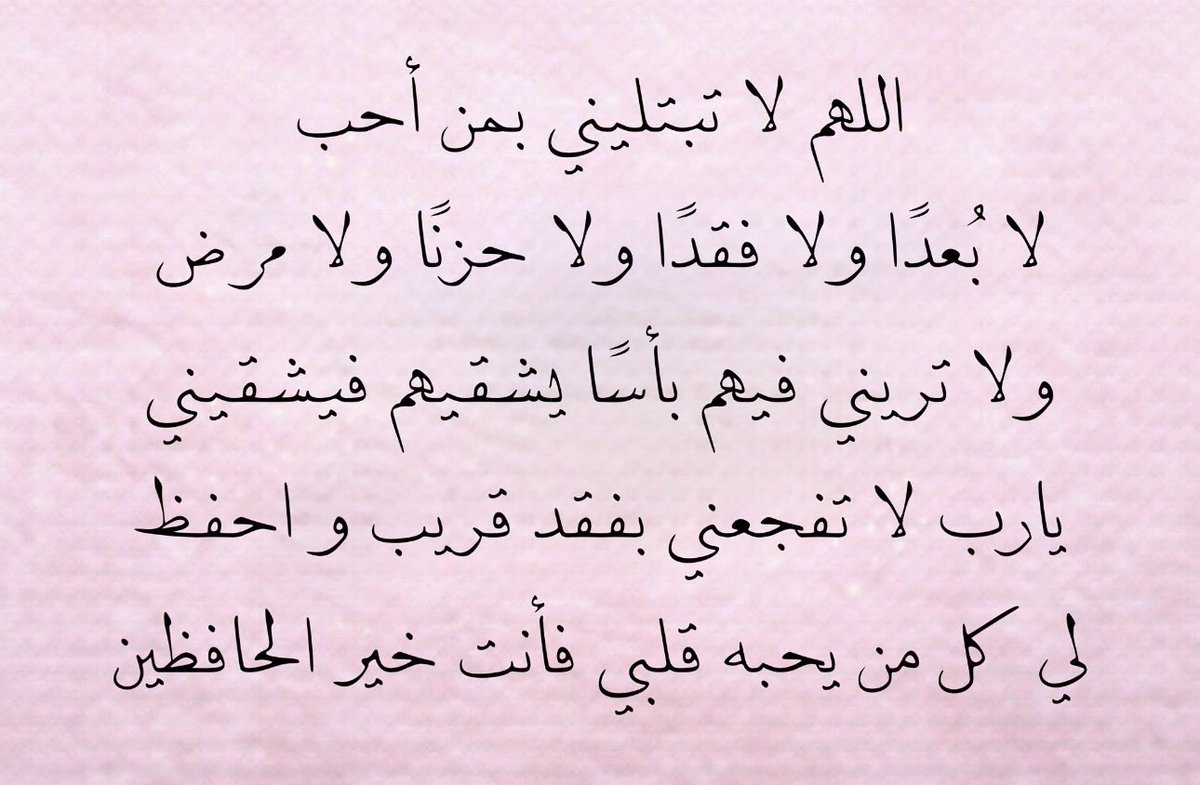 اللهم لا تبتليني بمن أحب
لا بُعدًا ولا فقدًا ولا حزنًا ولا مرض
ولا تريني فيهم بأسًا يشقيهم فيشقيني
يارب لا تفجعني بفقد قريب و احفظ
لي كل من يحبه قلبي فأنت خير الحافظين